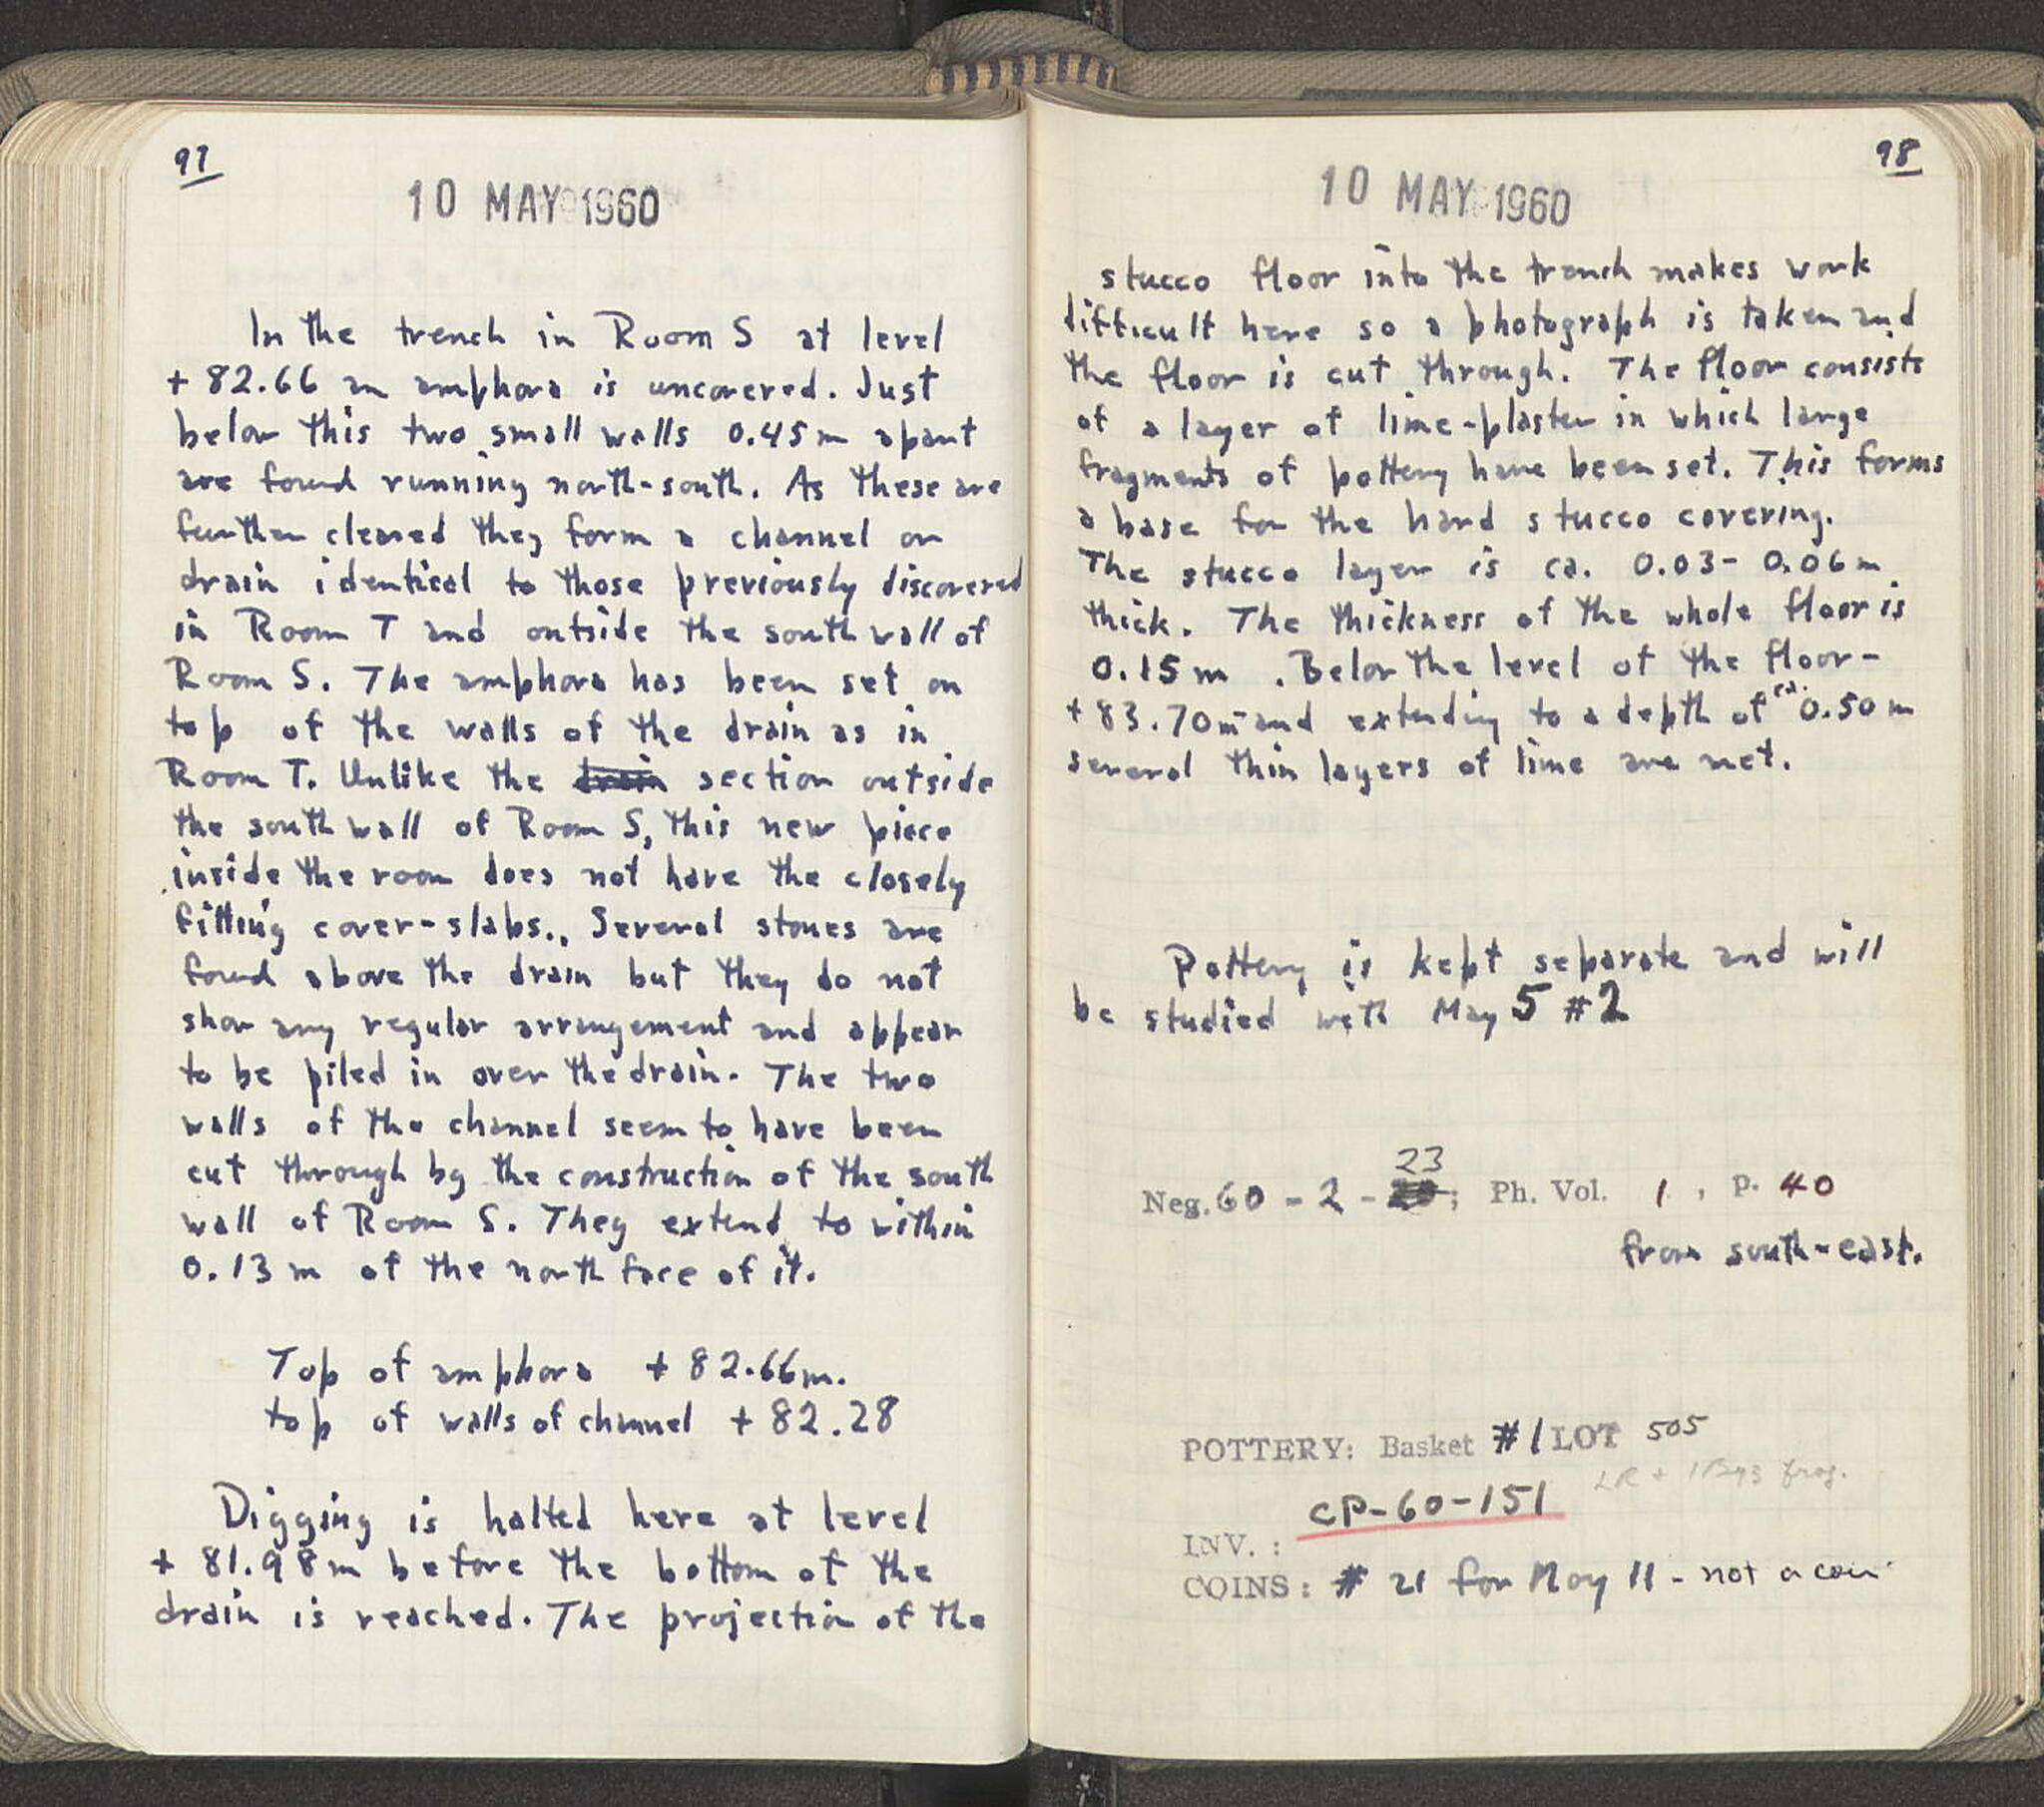 97
10 MAY 1960
In the trench in Room S at level
+ 82.66 an amphora is uncovered. Just
below this two small walls 0.45 m apart
are found running north-south. As these are
further cleared they form a channel or
drain identical to those previously discovered
in Room T and outside the south wall of
Room S. The amphora has been set on
top of the walls of the drain as in
Room T. Unlike the drain section outside
the south wall of Room S, this new piece
inside the room does not have the closely
fitting cover-slabs. Several stones are
found above the drain but they do not
show any regular arrangement and appear
to be piled in over the drain. The two
walls of the channel seem to have been
cut through by the construction of the south
wall of Room S. They extend to within
0.13 m of the north face of it.
Top of amphora + 82.66m.
top of walls of channel + 82.28
Digging is halted here at level
+ 81.98m before the bottom of the
drain is reached. The projection of the
98
10 MAY 1960
stucco floor into the trench makes work
difficult here so a photograph is taken and
the floor is cut through. The floor consists
of a layer of lime-plaster in which large
fragments of pottery have been set. This forms
a base for the hard stucco covering.
The stucco layer is ca. 0.03- 0.06 m
thick. The thickness of the whole floor is
0.15 m. Below the level of the floor-
+ 83.70m-and extending to a depth of ca. 0.50 m
several thin layers of lime are met.
Pottery is kept separate and will
be studied with May 5 #2
23
Neg. 60 - 2 - ; Ph. Vol. 1, p. 40
from south-east.
POTTERY: Basket #1 LOT 505
LR + 1 Byz frag.
CP-60-151
INV. :
COINS: # 21 for May 11 - not a coin